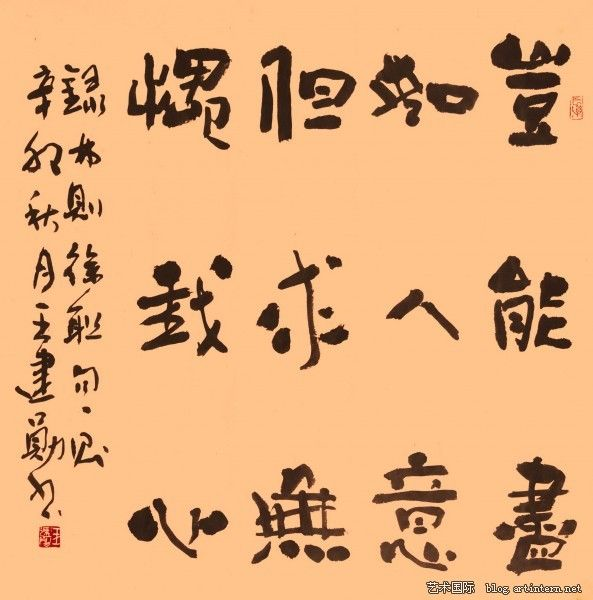 豈能盡
如人意
但求無
愧我心
録林則徐联句一
辛卯秋月王建勛书
艺术国际 blog.artintern.net